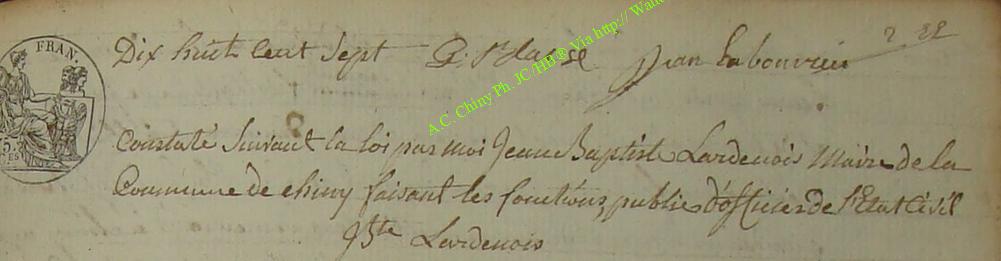 FRAN.
75.
CES
Dix huit cent sept Jean Labouvrie
A.C. Chiny Ph. JC /HB® Via http:// Wan
Constaté Suivant la loi par moi Jean Baptiste Lardenois Maire de la
Commune de Chiny faisant les fonctions, public d'officier de l'Etat Civil
JBte Lardenois